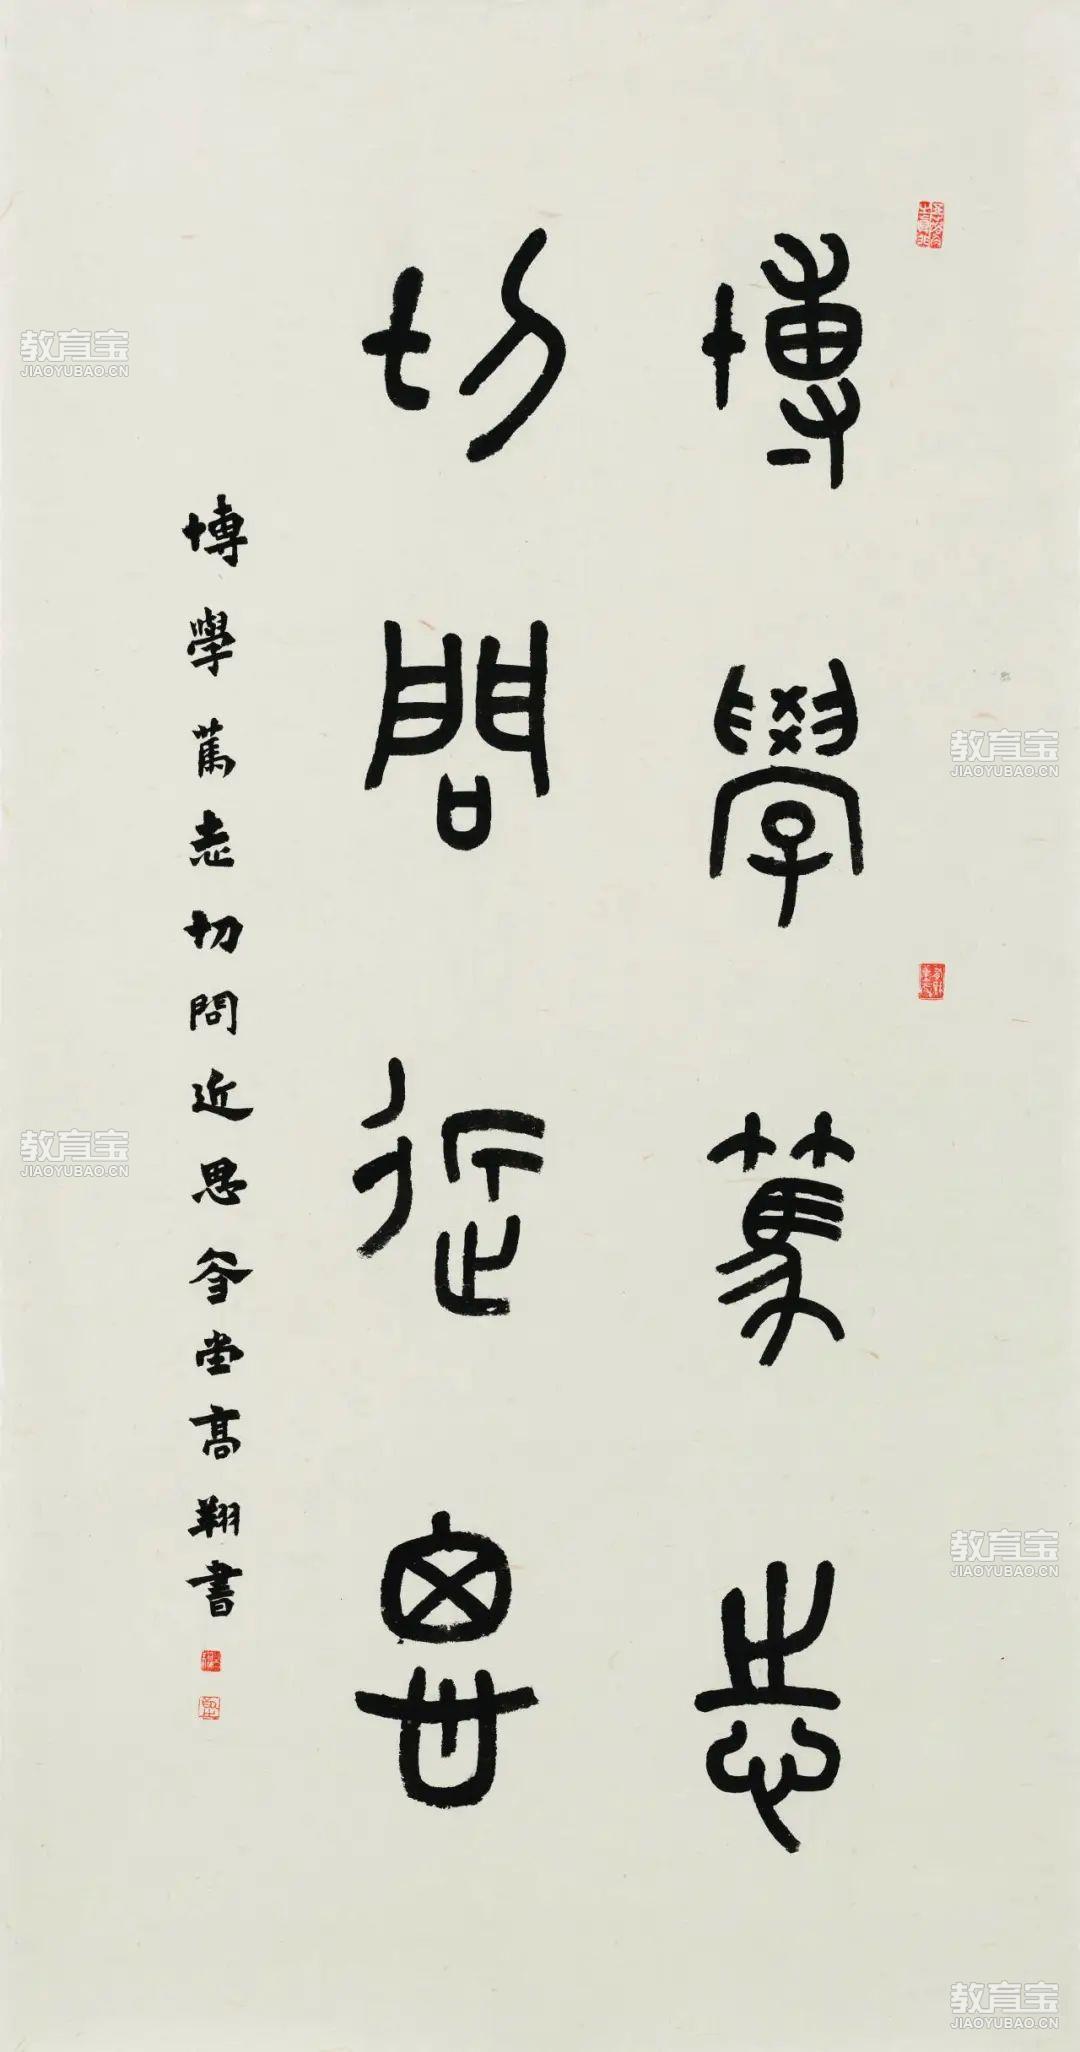 博學篤志
切問近思
博學篤志切問近思夆堂高翔書
教育宝
JIAOYUBAO.CN
教育宝
JIAOYUBAO.CN
教育宝
JIAOYUBAO.CN
教育宝
JIAOYUBAO.CN
教育宝
JIAOYUBAO.CN